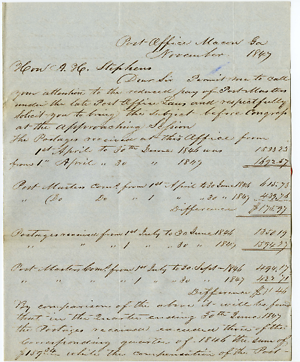 Post Office Macon Ga
November 1847
Hon A. H. Stephens
Dear Sir Permit me to call
your attention to the reduced pay of Post Masters
under the late Post Office Law and respectfully
solicit you to bring the Subject before Congress
at the Approaching Session
The Postages received at this Office from
1st April to 30th June 1846 was
from 1st April " 30 " 1847
Post Masters Coms. from 1st April to 30 June 1846
" Do Do " " 1 " " 30 " 1847
Difference
Postages received from 1st July to 30
" " " 1 " " 30 " 1847
Post Masters Coms. from 1st July to 30 Sept 1846
" " " " 1 " " 30 " 1847
Difference
By comparison of the above it will be seen
that in the Quarter ending 30th June 1847
the Postages received exceeded those of the
Corresponding quarter of 1846 the sum of
while the compensation of the Post